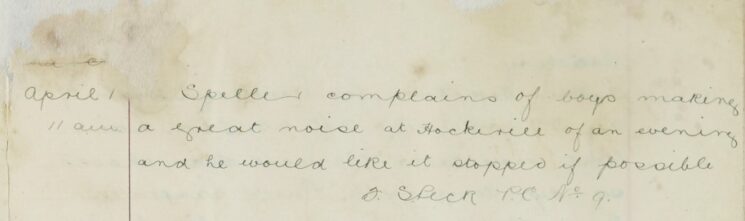 April 1 Speller complains of boys making
11 am a great noise at Hockerill of an evening
and he would like it stopped if possible
P.C. No 9.